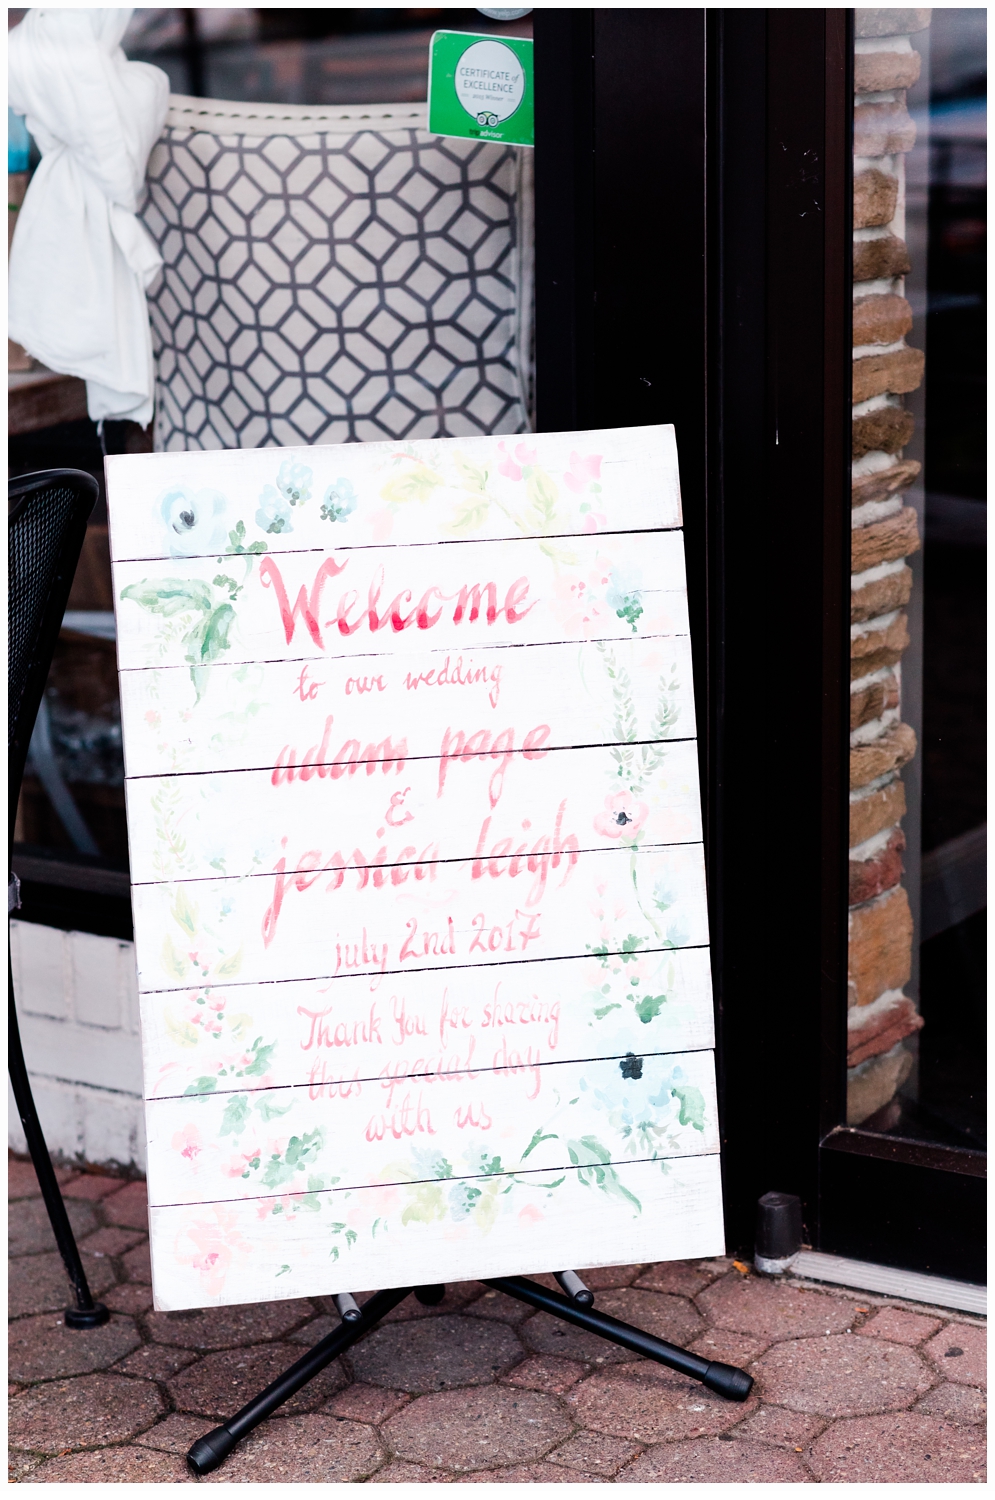 CERTIFICATE of
EXCELLENCE
2015 Winner
tripadvisor
Welcome
to our wedding
adam page
&
jessica leigh
july 2nd 2017
Thank You for sharing
this special day
with us